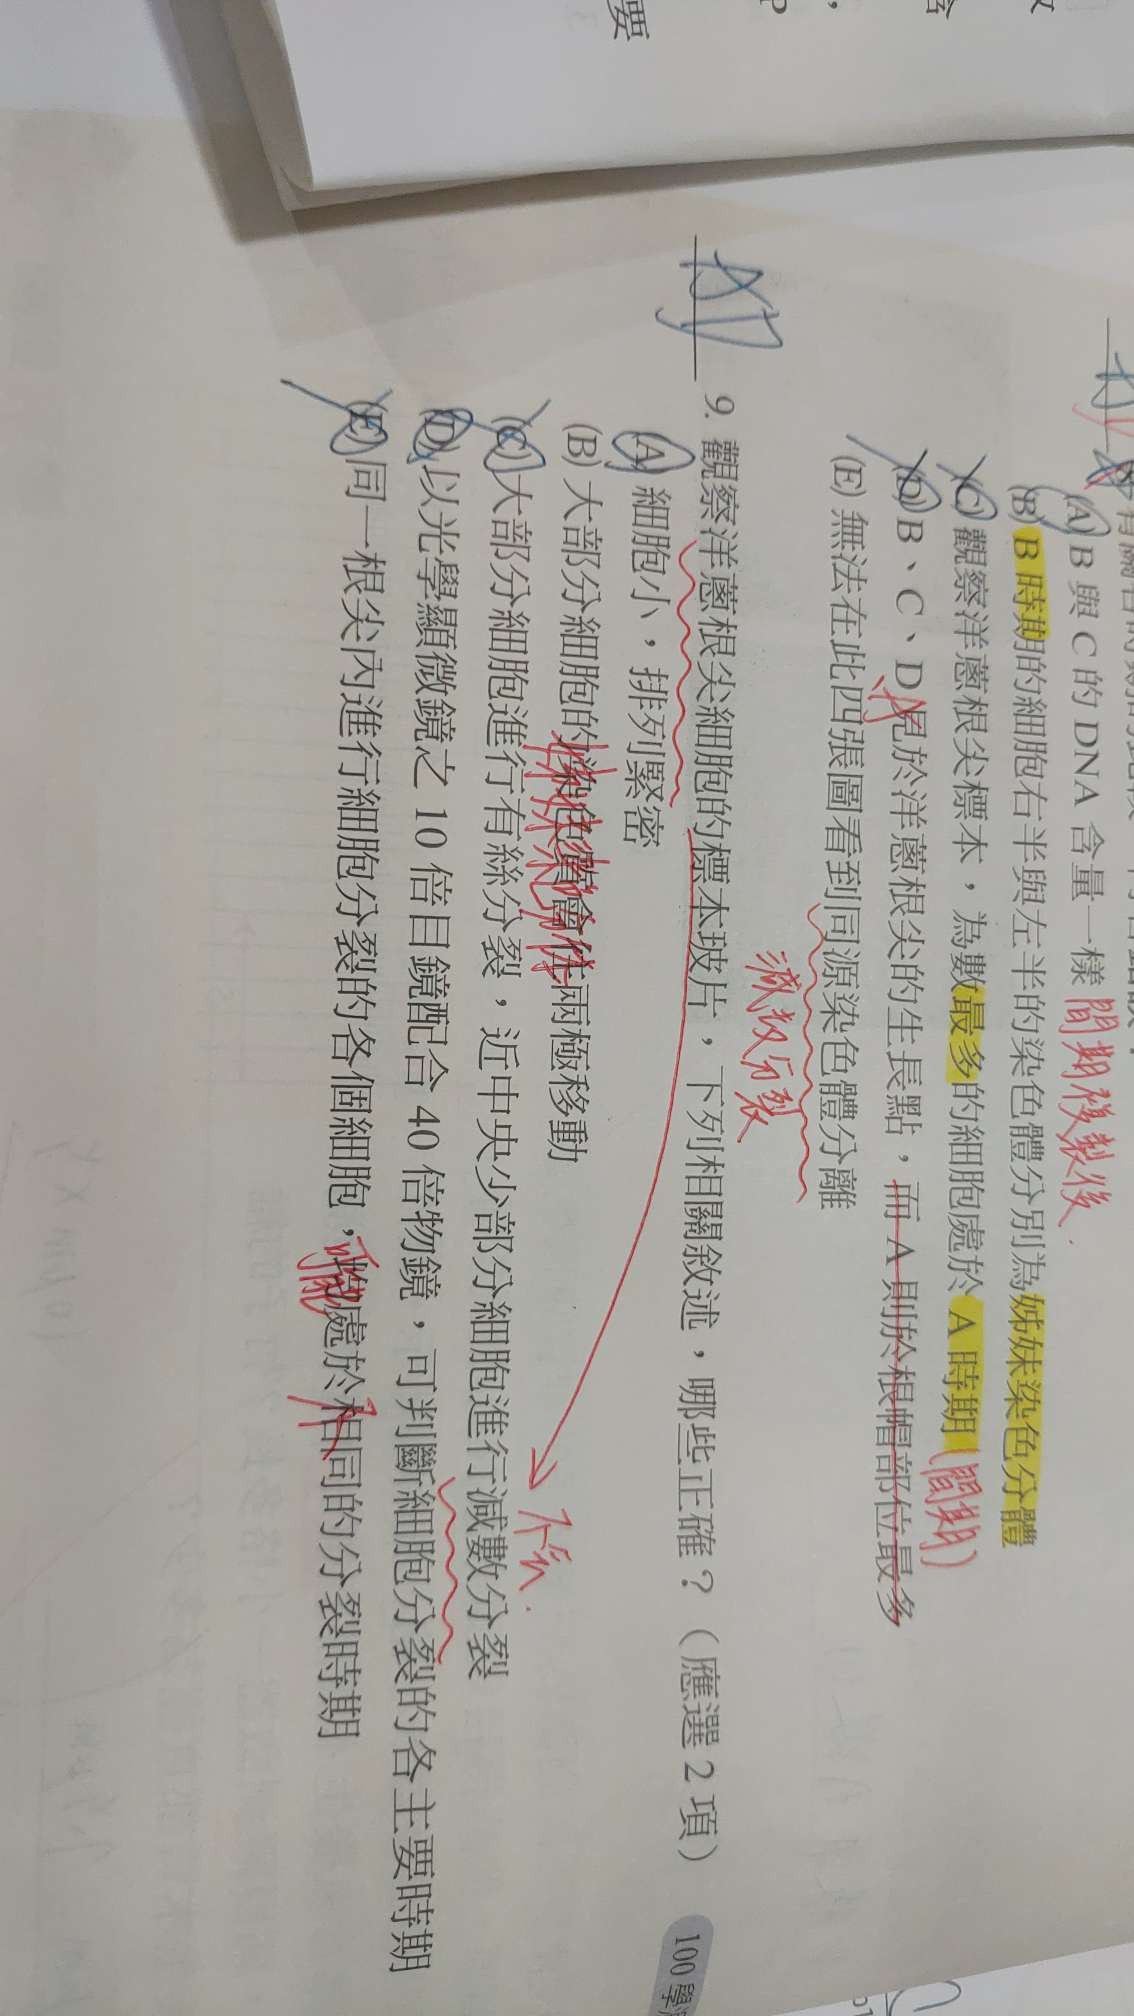 (A) B 與 C 的 DNA 含量一樣 間期複製後
(B) B 時期的細胞右半與左半的染色體分別為姊妹染色分體
(C) 觀察洋蔥根尖標本，為數最多的細胞處於 A 時期 (間期)
(D) B、C、D 見於洋蔥根尖的生長點，而 A 則於根帽部位最多
(E) 無法在此四張圖看到同源染色體分離
減數分裂
9. 觀察洋蔥根尖細胞的標本玻片，下列相關敘述，哪些正確？（應選 2 項）
100 學
(A) 細胞小，排列緊密
(B) 大部分細胞的染色質會往兩極移動
(C) 大部分細胞進行有絲分裂，近中央少部分細胞進行減數分裂
(D) 以光學顯微鏡之 10 倍目鏡配合 40 倍物鏡，可判斷細胞分裂的各主要時期
(E) 同一根尖內進行細胞分裂的各個細胞，均處於相同的分裂時期
要